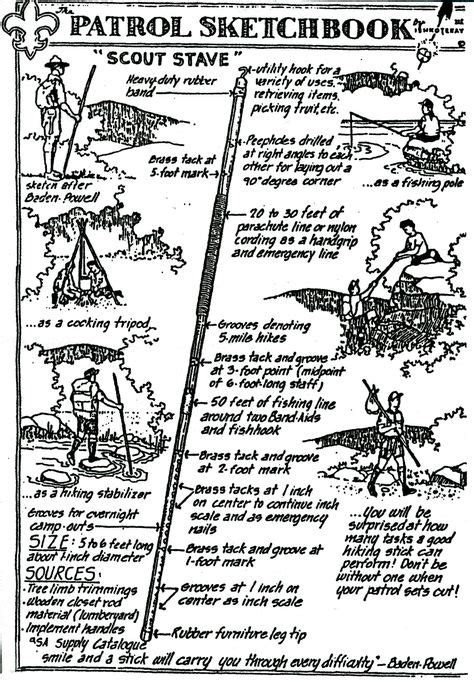 The
PATROL SKETCHBOOK
BY
"SCOUT STAVE"
Heavy-duty rubber
band
utility hook for a
variety of uses,
retrieving items,
picking fruit, etc.
Peepholes drilled
at right angles to each
other for laying out a
90° degree corner
Brass tack at
5-foot mark
sketch after
Baden-Powell
...as a fishing pole
20 to 30 feet of
parachute line or nylon
cording as a handgrip
and emergency line
...as a cooking tripod
Grooves denoting
5-mile hikes
Brass tack and groove
at 3-foot point (midpoint
of 6-foot-long staff)
50 feet of fishing line
around two Band-Aids
and fishhook
Brass tack and groove
at 2-foot mark
...as a hiking stabilizer
Brass tacks at 1 inch
on center to continue inch
scale and as emergency
nails
Grooves for overnight
camp-outs
SIZE: 5 to 6 feet long
about 1-inch diameter
Brass tack and groove at
1-foot mark
...You will be
surprised at how
many tasks a good
hiking stick can
perform! Don't be
without one when
your patrol sets out!
SOURCES:
-Tree limb trimmings
-Wooden closet rod
material (lumberyard)
-Implement handles
BSA Supply Catalogue
Grooves at 1 inch on
center as inch scale
Rubber furniture leg tip
"smile and a stick will carry you through every difficulty"-Baden-Powell